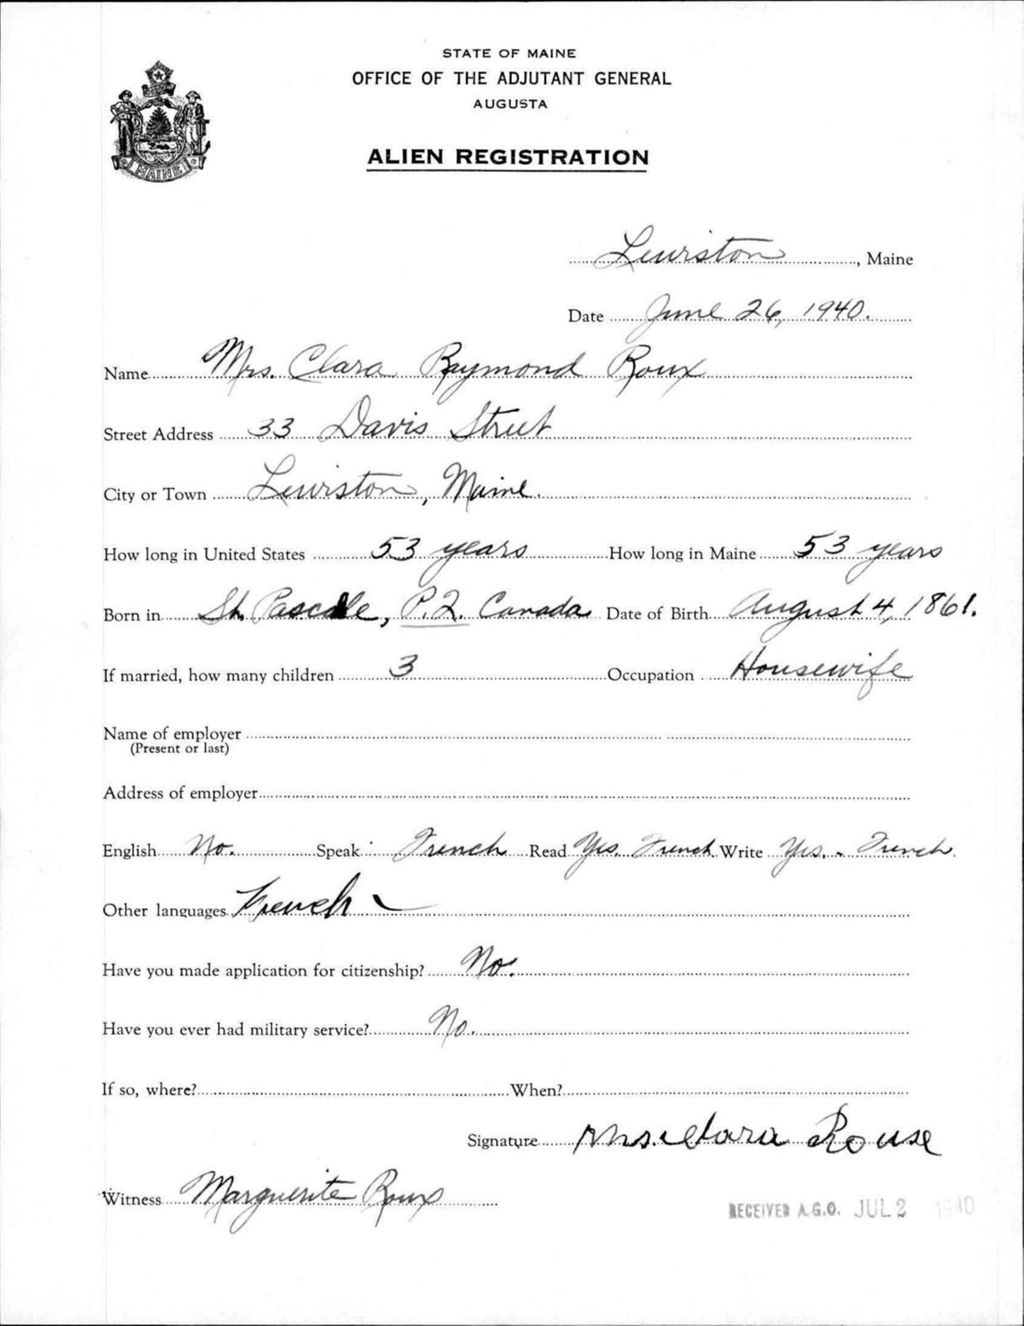 STATE OF MAINE
OFFICE OF THE ADJUTANT GENERAL
AUGUSTA
MAINE
ALIEN REGISTRATION
Lewiston, Maine
Date June 26, 1940.
Name Mrs. Clara Raymond Roux
Street Address 33 Davis Street
City or Town Lewiston, Maine.
How long in United States 53 years How long in Maine 53 years
Born in St. Pascalle, P.Q. Canada Date of Birth August 4, 1861.
If married, how many children 3 Occupation Housewife
Name of employer
(Present or last)
Address of employer
English No. Speak French Read Yes. French Write Yes. - French.
Other languages French
Have you made application for citizenship? No.
Have you ever had military service? No.
If so, where? When?
Signature Mrs. Clara Rouse
Witness Marguerite Roux
RECEIVED A.G.O. JUL 2 1940